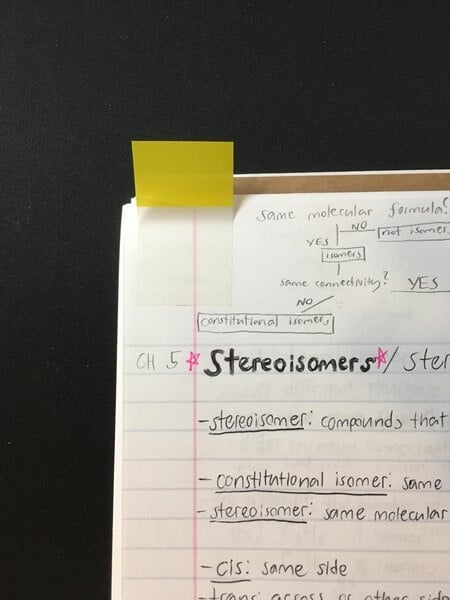 same molecular formula?
NO
not isomer
YES
isomers
same connectivity? YES
NO
constitutional isomers
CH 5 Stereoisomers / ster
- stereoisomer: compounds that
- constitutional isomer: same
- stereoisomer: same molecular
- cis: same side
- trans: across or other side